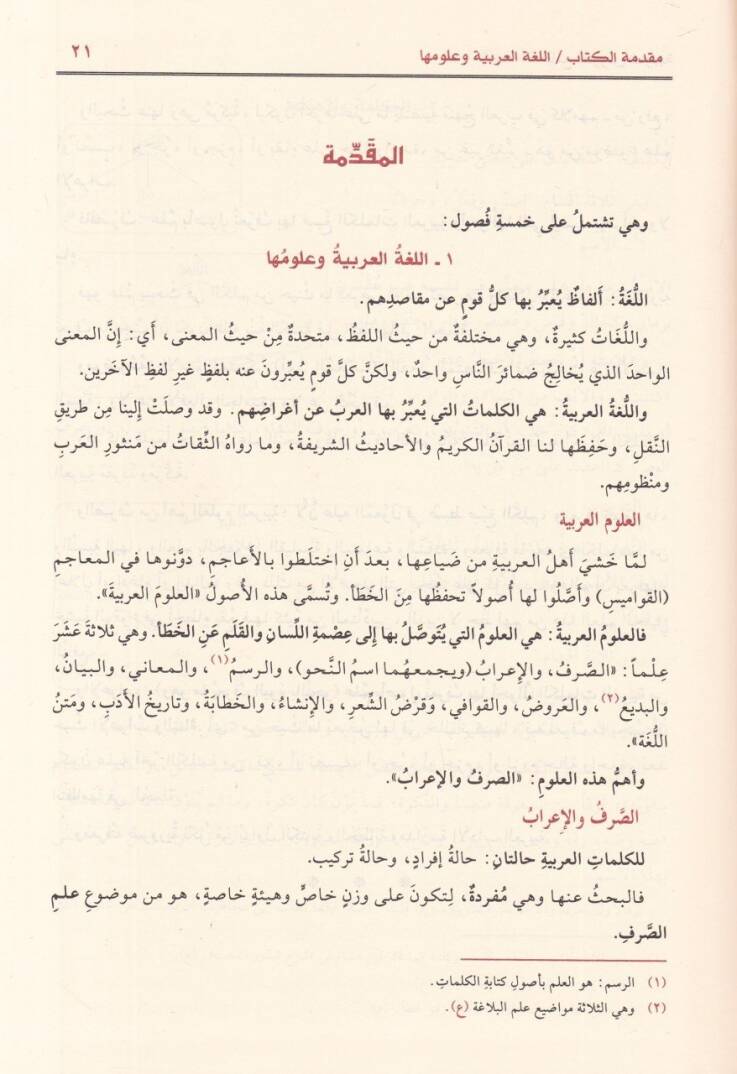 مقدمة الكتاب / اللغة العربية وعلومها ٢١
المقَدِّمة
وهي تشتملُ على خمسةِ فُصول:
١ - اللغةُ العربيةُ وعلومُها
اللُّغَةُ: ألفاظٌ يُعبِّرُ بها كلُّ قومٍ عن مقاصدِهم.
واللُّغَاتُ كثيرةٌ، وهي مختلفةٌ من حيثُ اللفظُ، متحدةٌ مِنْ حيثُ المعنى، أَي: إنَّ المعنى
الواحدَ الذي يُخالِجُ ضمائرَ النَّاسِ واحدٌ، ولكنَّ كلَّ قومٍ يُعبِّرونَ عنه بلفظٍ غيرِ لفظِ الآخَرين.
واللُّغةُ العربيةُ: هي الكلماتُ التي يُعبِّرُ بها العربُ عن أغراضِهم. وقد وصلَتْ إلينا مِن طريقِ
النَّقلِ، وحَفِظَها لنا القرآنُ الكريمُ والأحاديثُ الشريفةُ، وما رواهُ الثِّقاتُ من مَنثورِ العَربِ
ومنْظومِهم.
العلوم العربية
لمَّا خشيَ أهلُ العربيةِ من ضَياعِها، بعدَ أَنِ اختلَطوا بالأعاجمِ، دوَّنوها في المعاجمِ
(القواميسِ) وأَصَّلُوا لها أُصولاً تحفظُها مِنَ الخَطَأ. وتُسمَّى هذه الأُصولُ «العلومَ العربيةَ».
فالعلومُ العربيةُ: هي العلومُ التي يُتوَصَّلُ بها إلى عِصمةِ اللِّسانِ والقَلَمِ عَنِ الخَطَأ. وهي ثلاثةَ عَشَرَ
عِلْماً: «الصَّرفُ، والإعرابُ (ويجمعهُما اسمُ النَّحو)، والرسمُ(١)، والمعاني، والبيانُ،
والبديعُ(٢)، والعَروضُ، والقوافي، وَقَرْضُ الشِّعرِ، والإنشاءُ، والخَطابَةُ، وتاريخُ الأدَبِ، ومَتنُ
اللُّغَة».
وأهمُّ هذه العلومِ: «الصرفُ والإعرابُ».
الصَّرفُ والإعرابُ
للكلماتِ العربيةِ حالتانِ: حالةُ إفرادٍ، وحالةُ تركيب.
فالبحثُ عنها وهي مُفردةٌ، لِتكونَ على وزنٍ خاصٍّ وهيئةٍ خاصةٍ، هو من موضوعِ علمِ
الصَّرفِ.
(١) الرسم: هو العلم بأصولِ كتابةِ الكلماتِ.
(٢) وهي الثلاثة مواضيع علم البلاغة (ع).